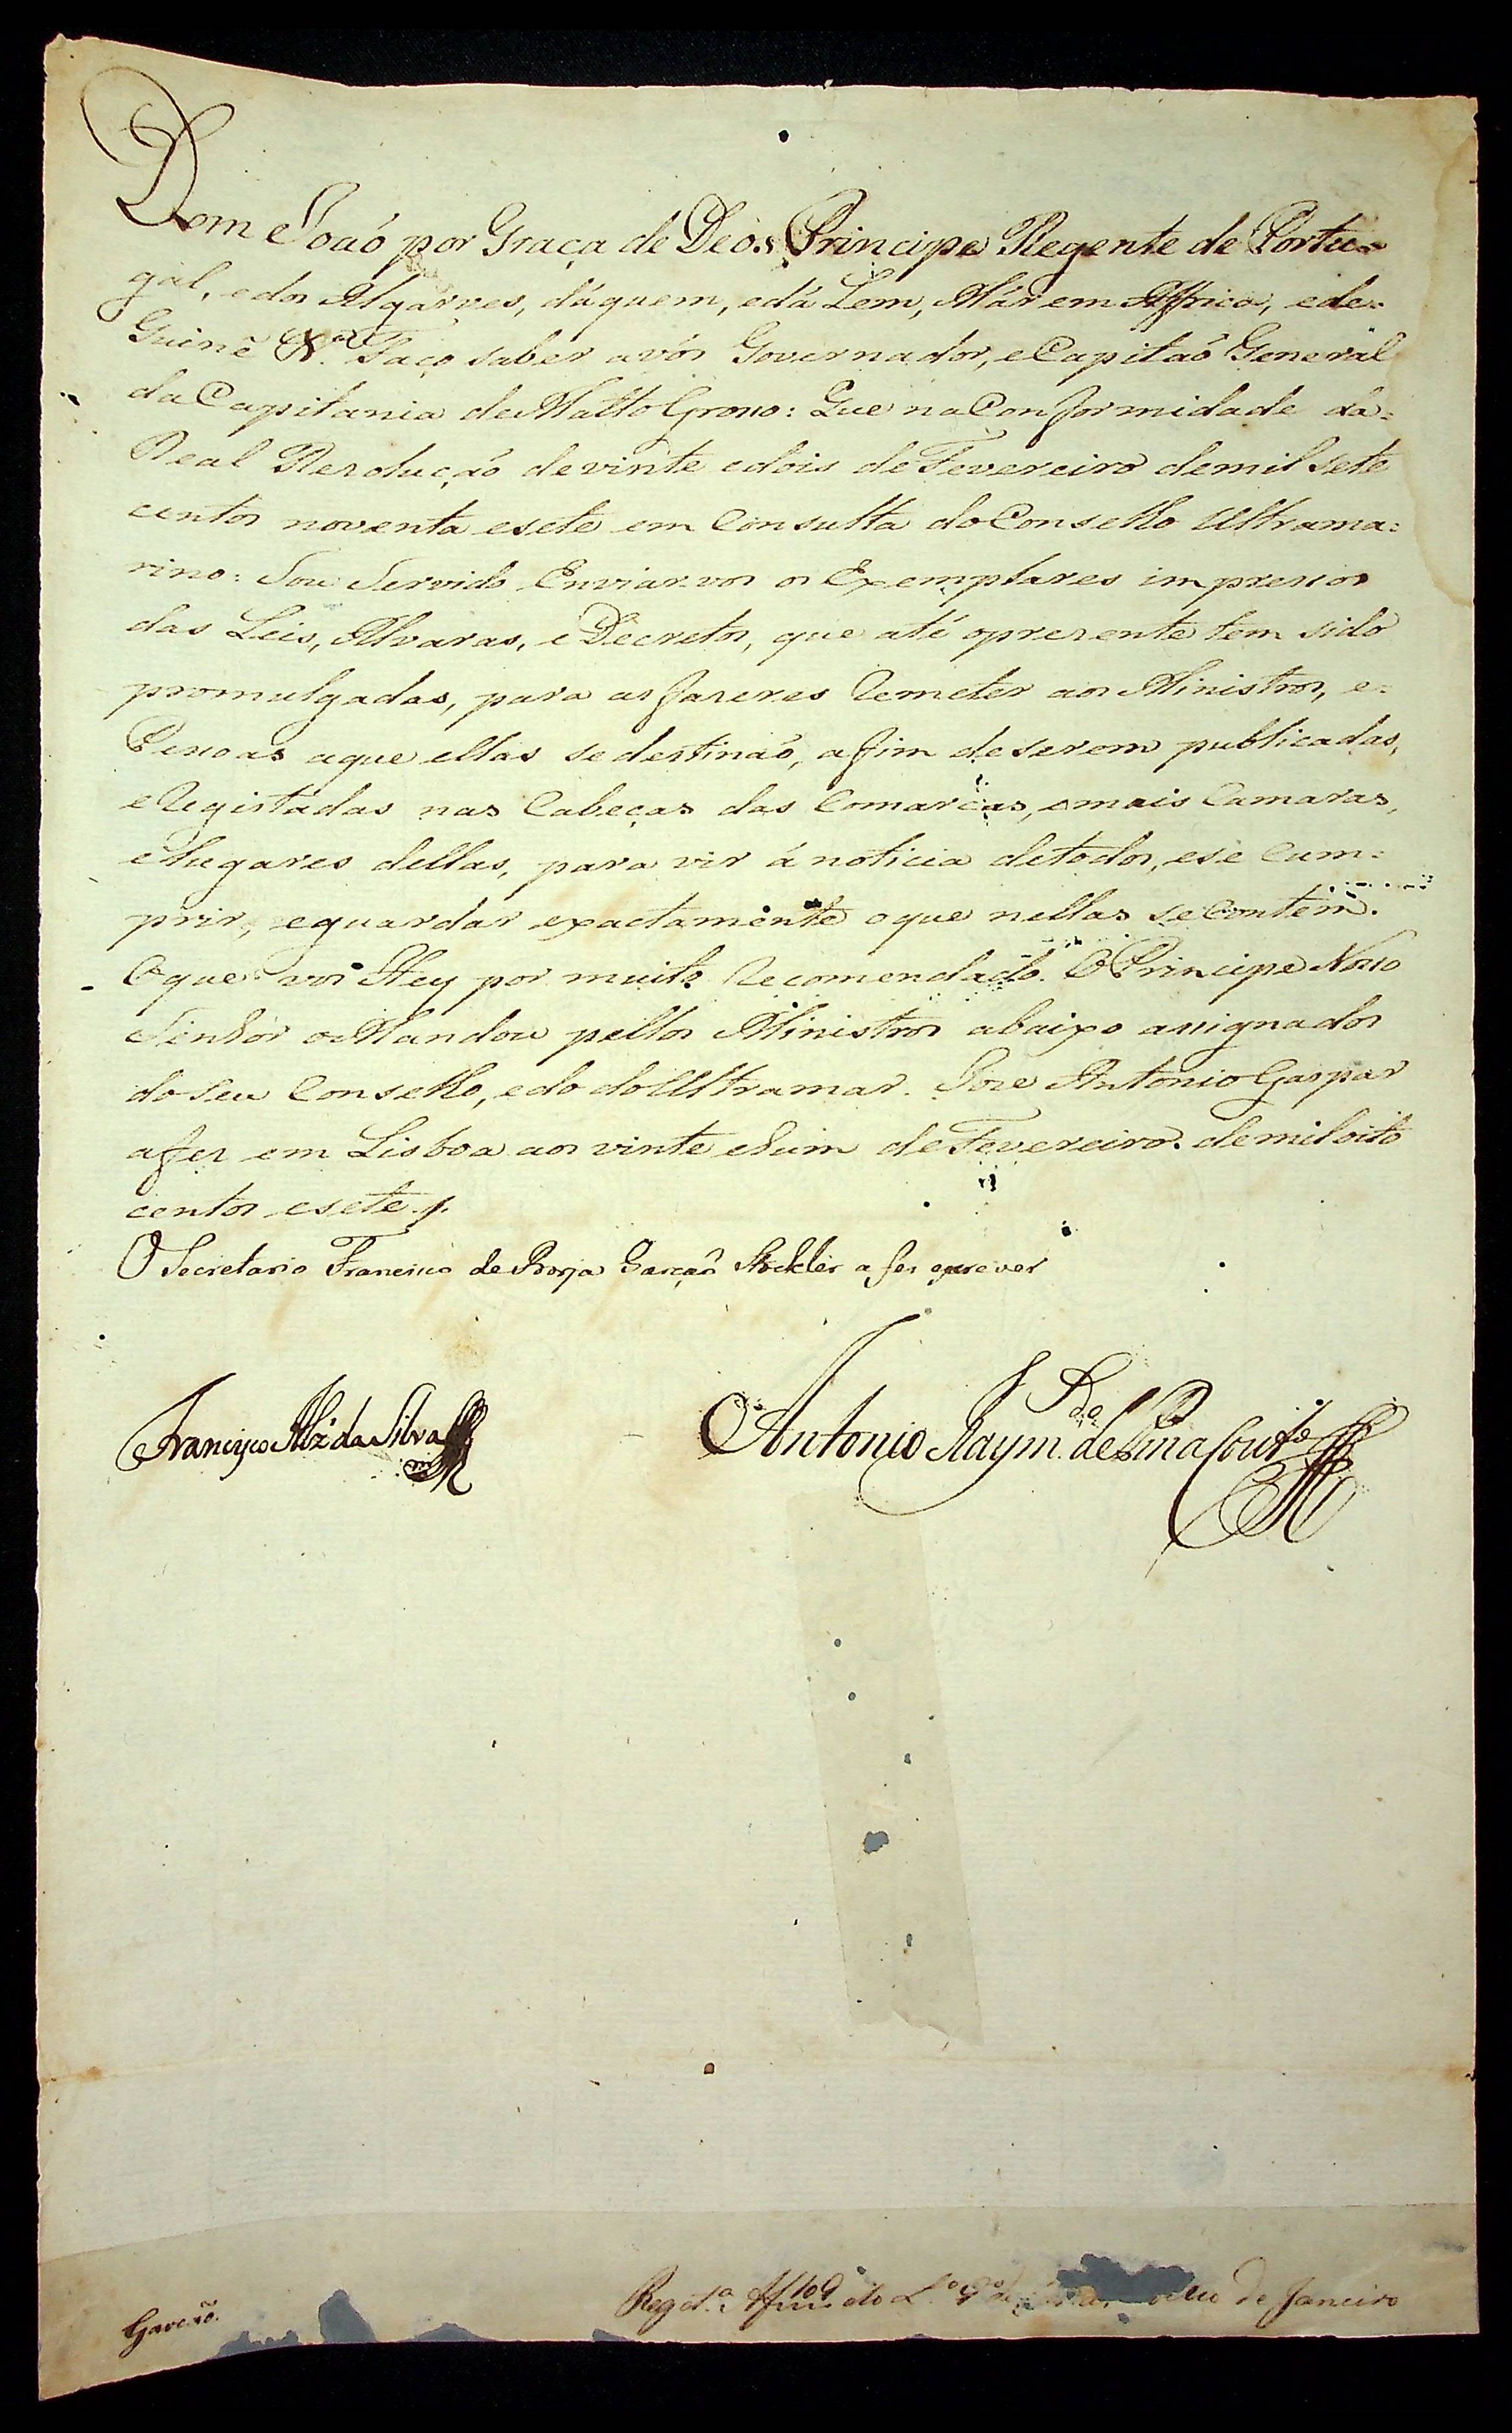 Dom Joaó por Graça de Deos Principe Regente de Portu=
gal, e dos Algarves, dáquem, edá Lem, Már em Affrica, ede=
Guiné &.ª Faço saber avós Governador, eCapitaó General
daCapitania deMattoGrosso: Que naConformidade da=
Real Rezoluçaó devinte edois deFevereiro demil sete
centos noventa esete em Consulta doConselho Ultrama=
rino: Sou Servido Enviarvos os Exemplares impressos
das Leis, Alvaras, eDecretos, que até opresente tem sido
promulgadas, para asfazeres Remeter aos Ministros, e=
Pessoas aque ellas sedestinaó, afim deserem publicadas,
eRegistadas nas Cabeças das Comarcas, emais Camaras,
eLugares dellas, para vir ánoticia detodos, ese Cum=
prir, eguardar exactamente oque nellas seContem.
Oque vos Hey por muito Recomendado. OPrincipe Nosso
Senhór oMandou pellos Ministros abaixo assignados
doSeu Conselho, edo doUltramar. Joze Antonio Gaspar
afez em Lisboa aos vinte ehum deFevereiro demiloito
centos esete.
O Secretario Francisco de Borja Garçaõ Stockler a fez escrever
Francisco Alz' da Silva
Antonio Raym.do de Pina Cout.o
Garcaõ.
Regd.ª Af 109 do L.º 9º de Janeiro